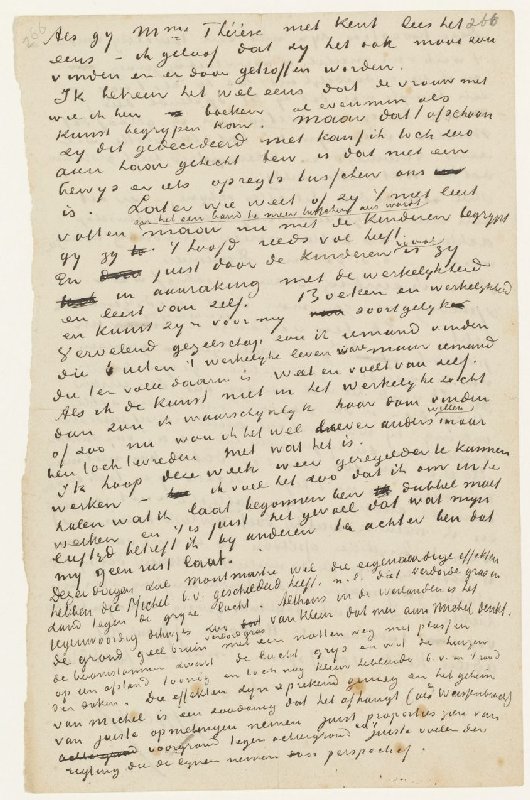 266
Als gy Mme Thérèse niet kent lees het 266
eens – ik geloof dat gy het ook mooi zou
vinden en er door getroffen worden.
Ik betreur het wel eens dat de vrouw met
wie ik ben boeken al evenmin als
kunst begrypen kan. Maar dat (ofschoon
zy dit gedecideerd niet kan) ik toch zoo
aan haar gehecht ben is dat niet een
bewys er iets opregts tusschen ons
is. Later wie weet of zy 't niet leert
van het een band te meer tusschen ons wordt
vatten maar nu met de kinderen begrypt
gy zy 't hoofd reeds vol heeft.
En juist door de kinderen is zy
in aanraking met de werkelykheid
en leert van zelf. Boeken en werkelykheid
en kunst zyn voor my soortgelyk
Vervelend gezelschap zou ik iemand vinden
die buiten 't werkelyke leven maar iemand
die ten volle daarin is weet en voelt van zelf.
Als ik de kunst niet in het werkelyke zocht
dan zou ik waarschynlyk haar dom vinden
willen
of zoo nu wou ik het wel liever anders maar
ben toch tevreden met wat het is.
Ik hoop deze week weer geregelder te kunnen
werken – ik voel het zoo dat ik om in te
halen wat ik laat begonnen ben dubbel moet
werken en 't is juist het gevoel dat wat myn
leeftyd betreft ik by anderen ten achter ben dat
my geen rust laat.
Dezer dagen zal Montmartre wel die eigenaardige effekten
hebben die Michel b.v. geschilderd heeft. n.l. dat verdorde gras en
zand tegen de gryze lucht. Althans in de weilanden is het
tegenwoordig dikwyls zoo van kleur dat men aan Michel denkt.
verdord gras
de grond geel bruin met een natten weg met plassen
de boomstammen zwart de lucht grys en wit de huizen
op een afstand toonig en toch nog kleur hebbende b.v. in 't rood
der daken. Die effekten zyn sprekend genoeg en het geheim
van Michel is een zoodanig dat het afhangt (als Weissenbruch)
van juiste opmetingen nemen juist proporties zien van
voorgrond tegen achtergrond en juiste voelen der
rigting die de lynen nemen door perspectief.